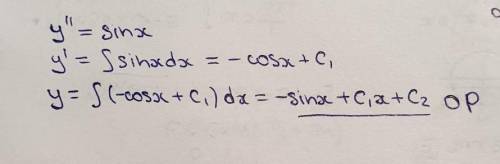 y'' = sinx
y' = ∫ sinxdx = - cosx + C₁
y = ∫ (-cosx + C₁) dx = -sinx + C₁x + C₂ OP